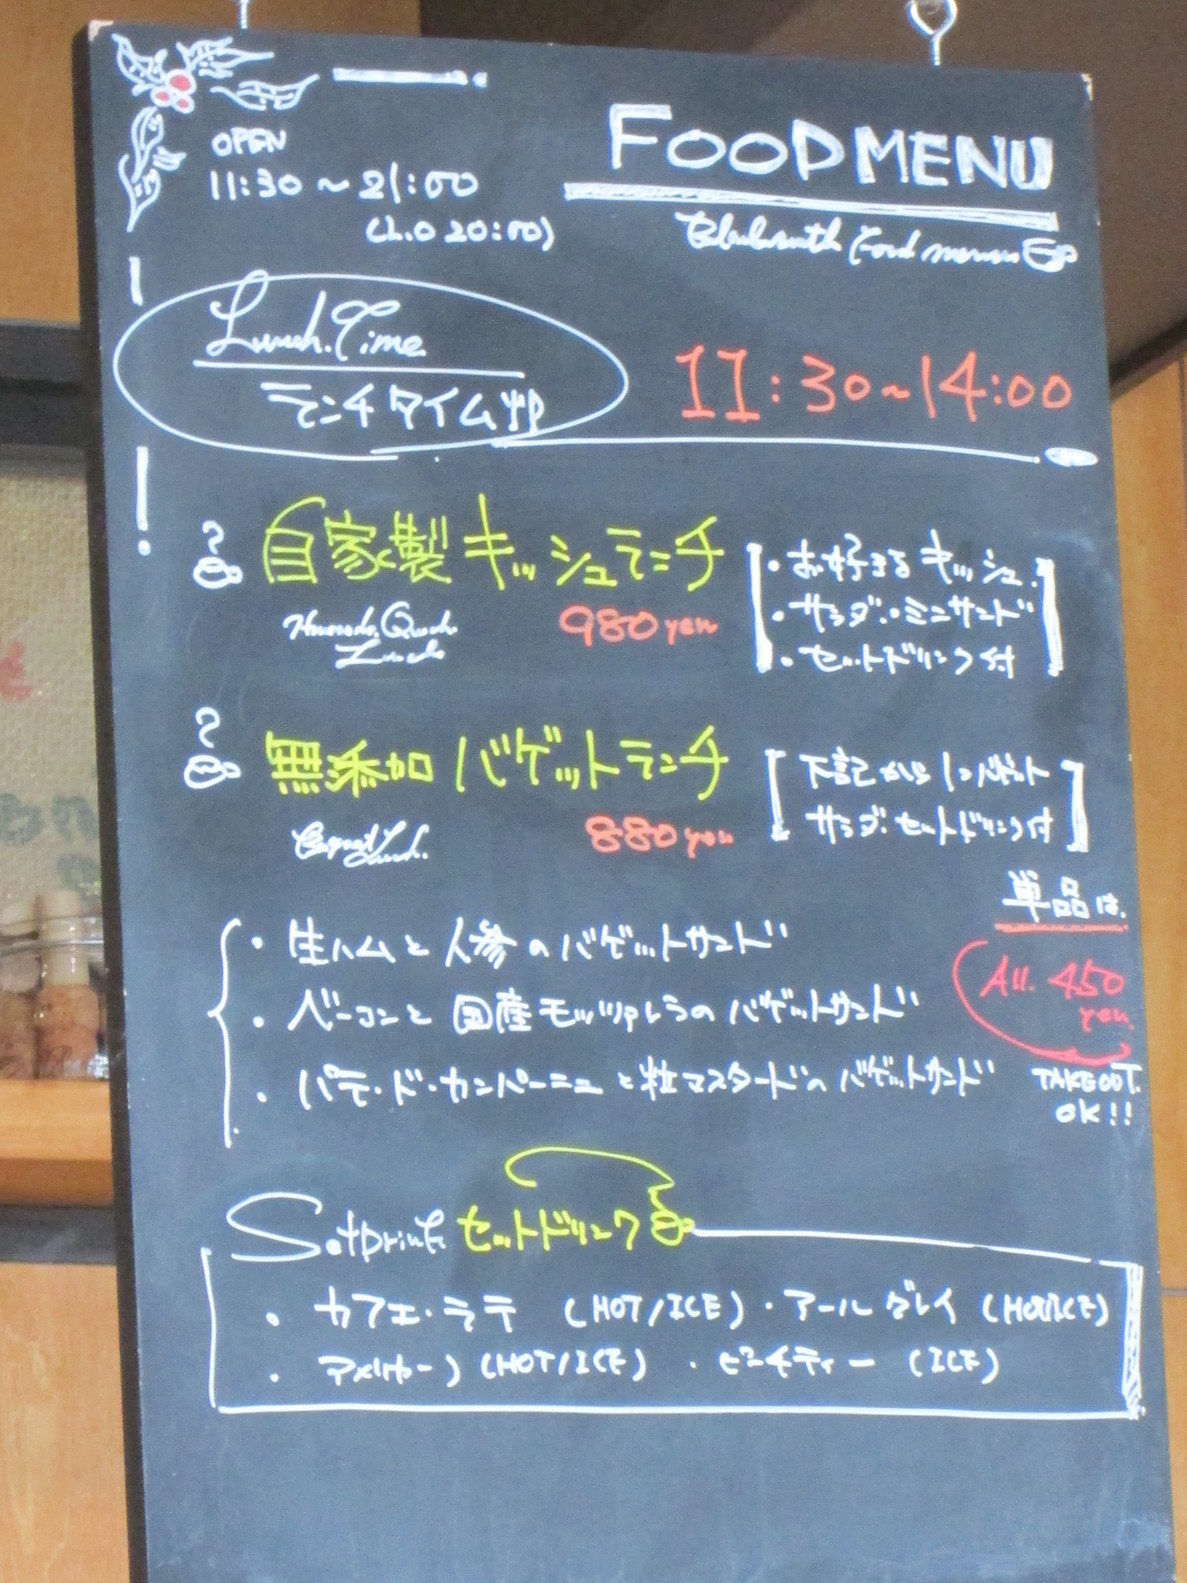 OPEN
11:30 ~ 21:00
(L.O 20:00)
FOOD MENU
Food menu
Lunch. Time
ランチタイム
11:30~14:00
自家製 キッシュランチ
980 yen
Lunch
・お好きなキッシュ.
・サラダ.・ミニサンド
・セットドリンク付
無添加 バゲットランチ
Lunch.
880 yen
下記から1ンバゲット
サラダ.セットドリンク付
単品は.
All. 450
yen.
TAKE OUT.
OK!!
・生ハムと人参のバゲットサンド
・ベーコンと国産モッツァレラのバゲットサンド
・パテ・ド・カンパーニュと粒マスタードのバゲットサンド
Set Drink セットドリンク
・カフェ・ラテ (HOT/ICE)・アールグレイ (HOT/ICE)
・アメリカーノ (HOT/ICE)・ピーチティー (ICE)